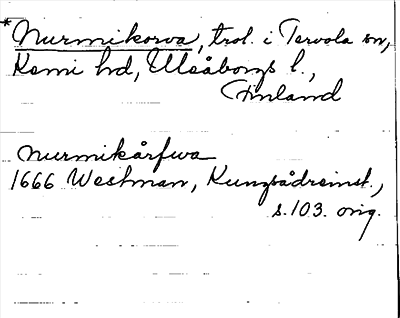 *Nurmikorva, trol. i Tervola sn,
Kemi hd, Uleåborgs l.,
Finland
Nurmikårfwa
1666 Westman, Kungsådreinst.,
s. 103. orig.